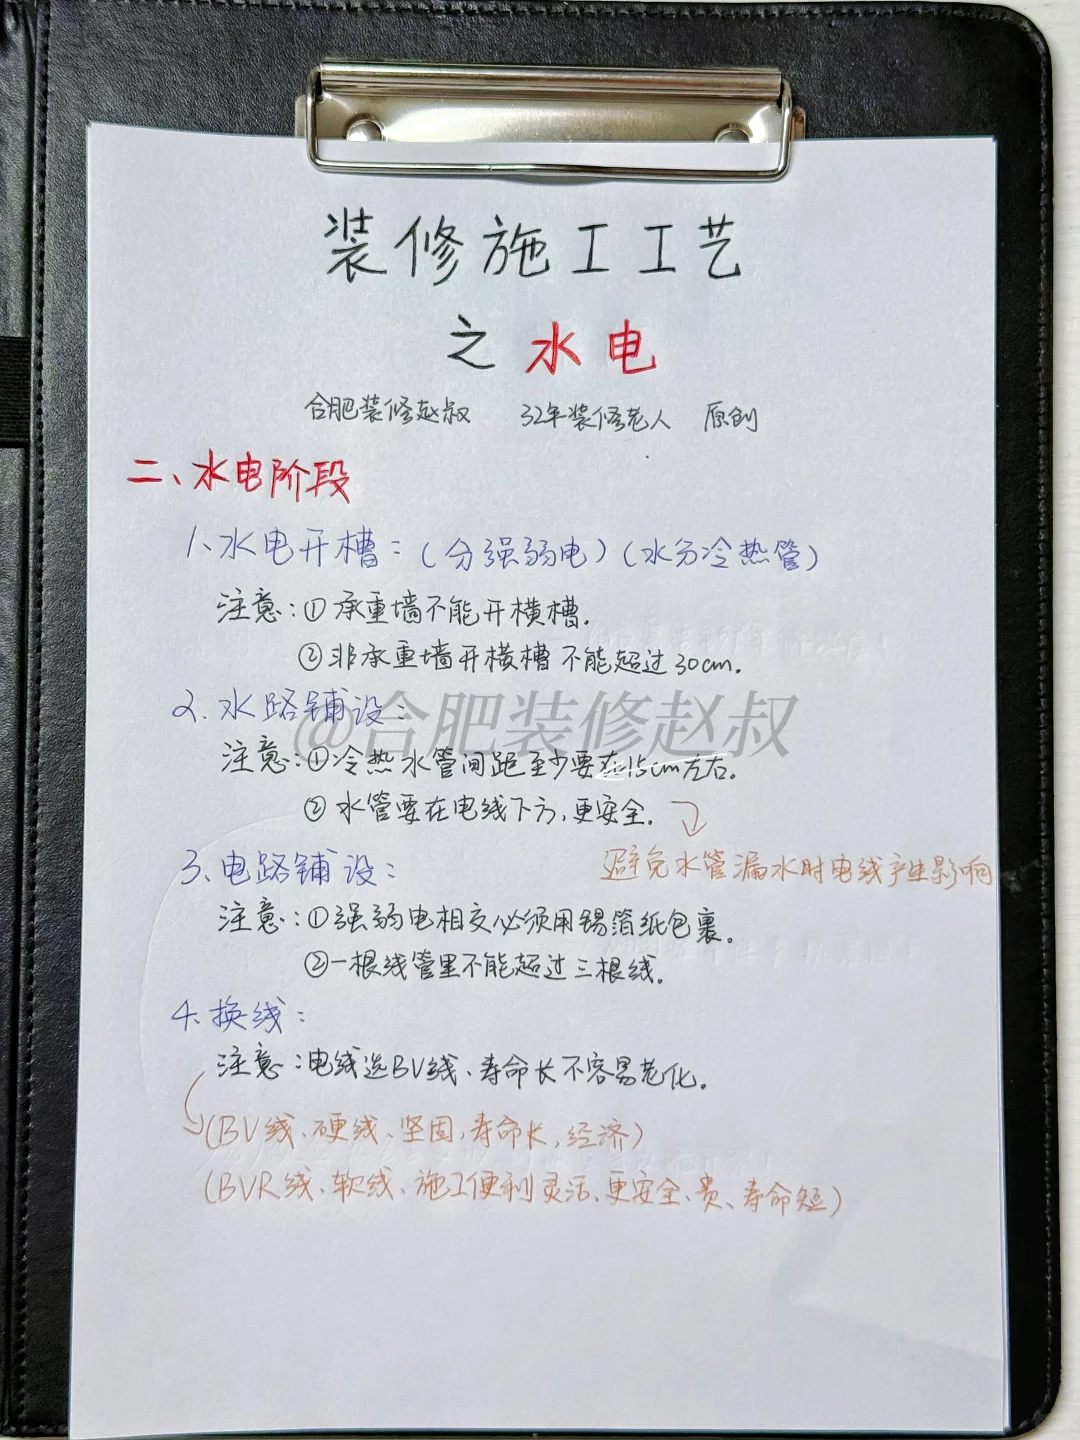 装修施工工艺
之水电
合肥装修赵叔 32年装修老人 原创
二、水电阶段
1、水电开槽：（分强弱电）（水分冷热管）
注意：①承重墙不能开横槽.
②非承重墙开横槽不能超过30cm.
2.水路铺设：
@合肥装修赵叔
注意：①冷热水管间距至少要在15cm左右.
②水管要在电线下方,更安全.
避免水管漏水时电线产生影响
3、电路铺设：
注意：①强弱电相交必须用锡箔纸包裹。
②一根线管里不能超过三根线。
4、换线：
注意：电线选BV线、寿命长不容易老化.
（BV线、硬线、坚固,寿命长,经济）
（BVR线、软线、施工便利灵活、更安全、贵、寿命短）